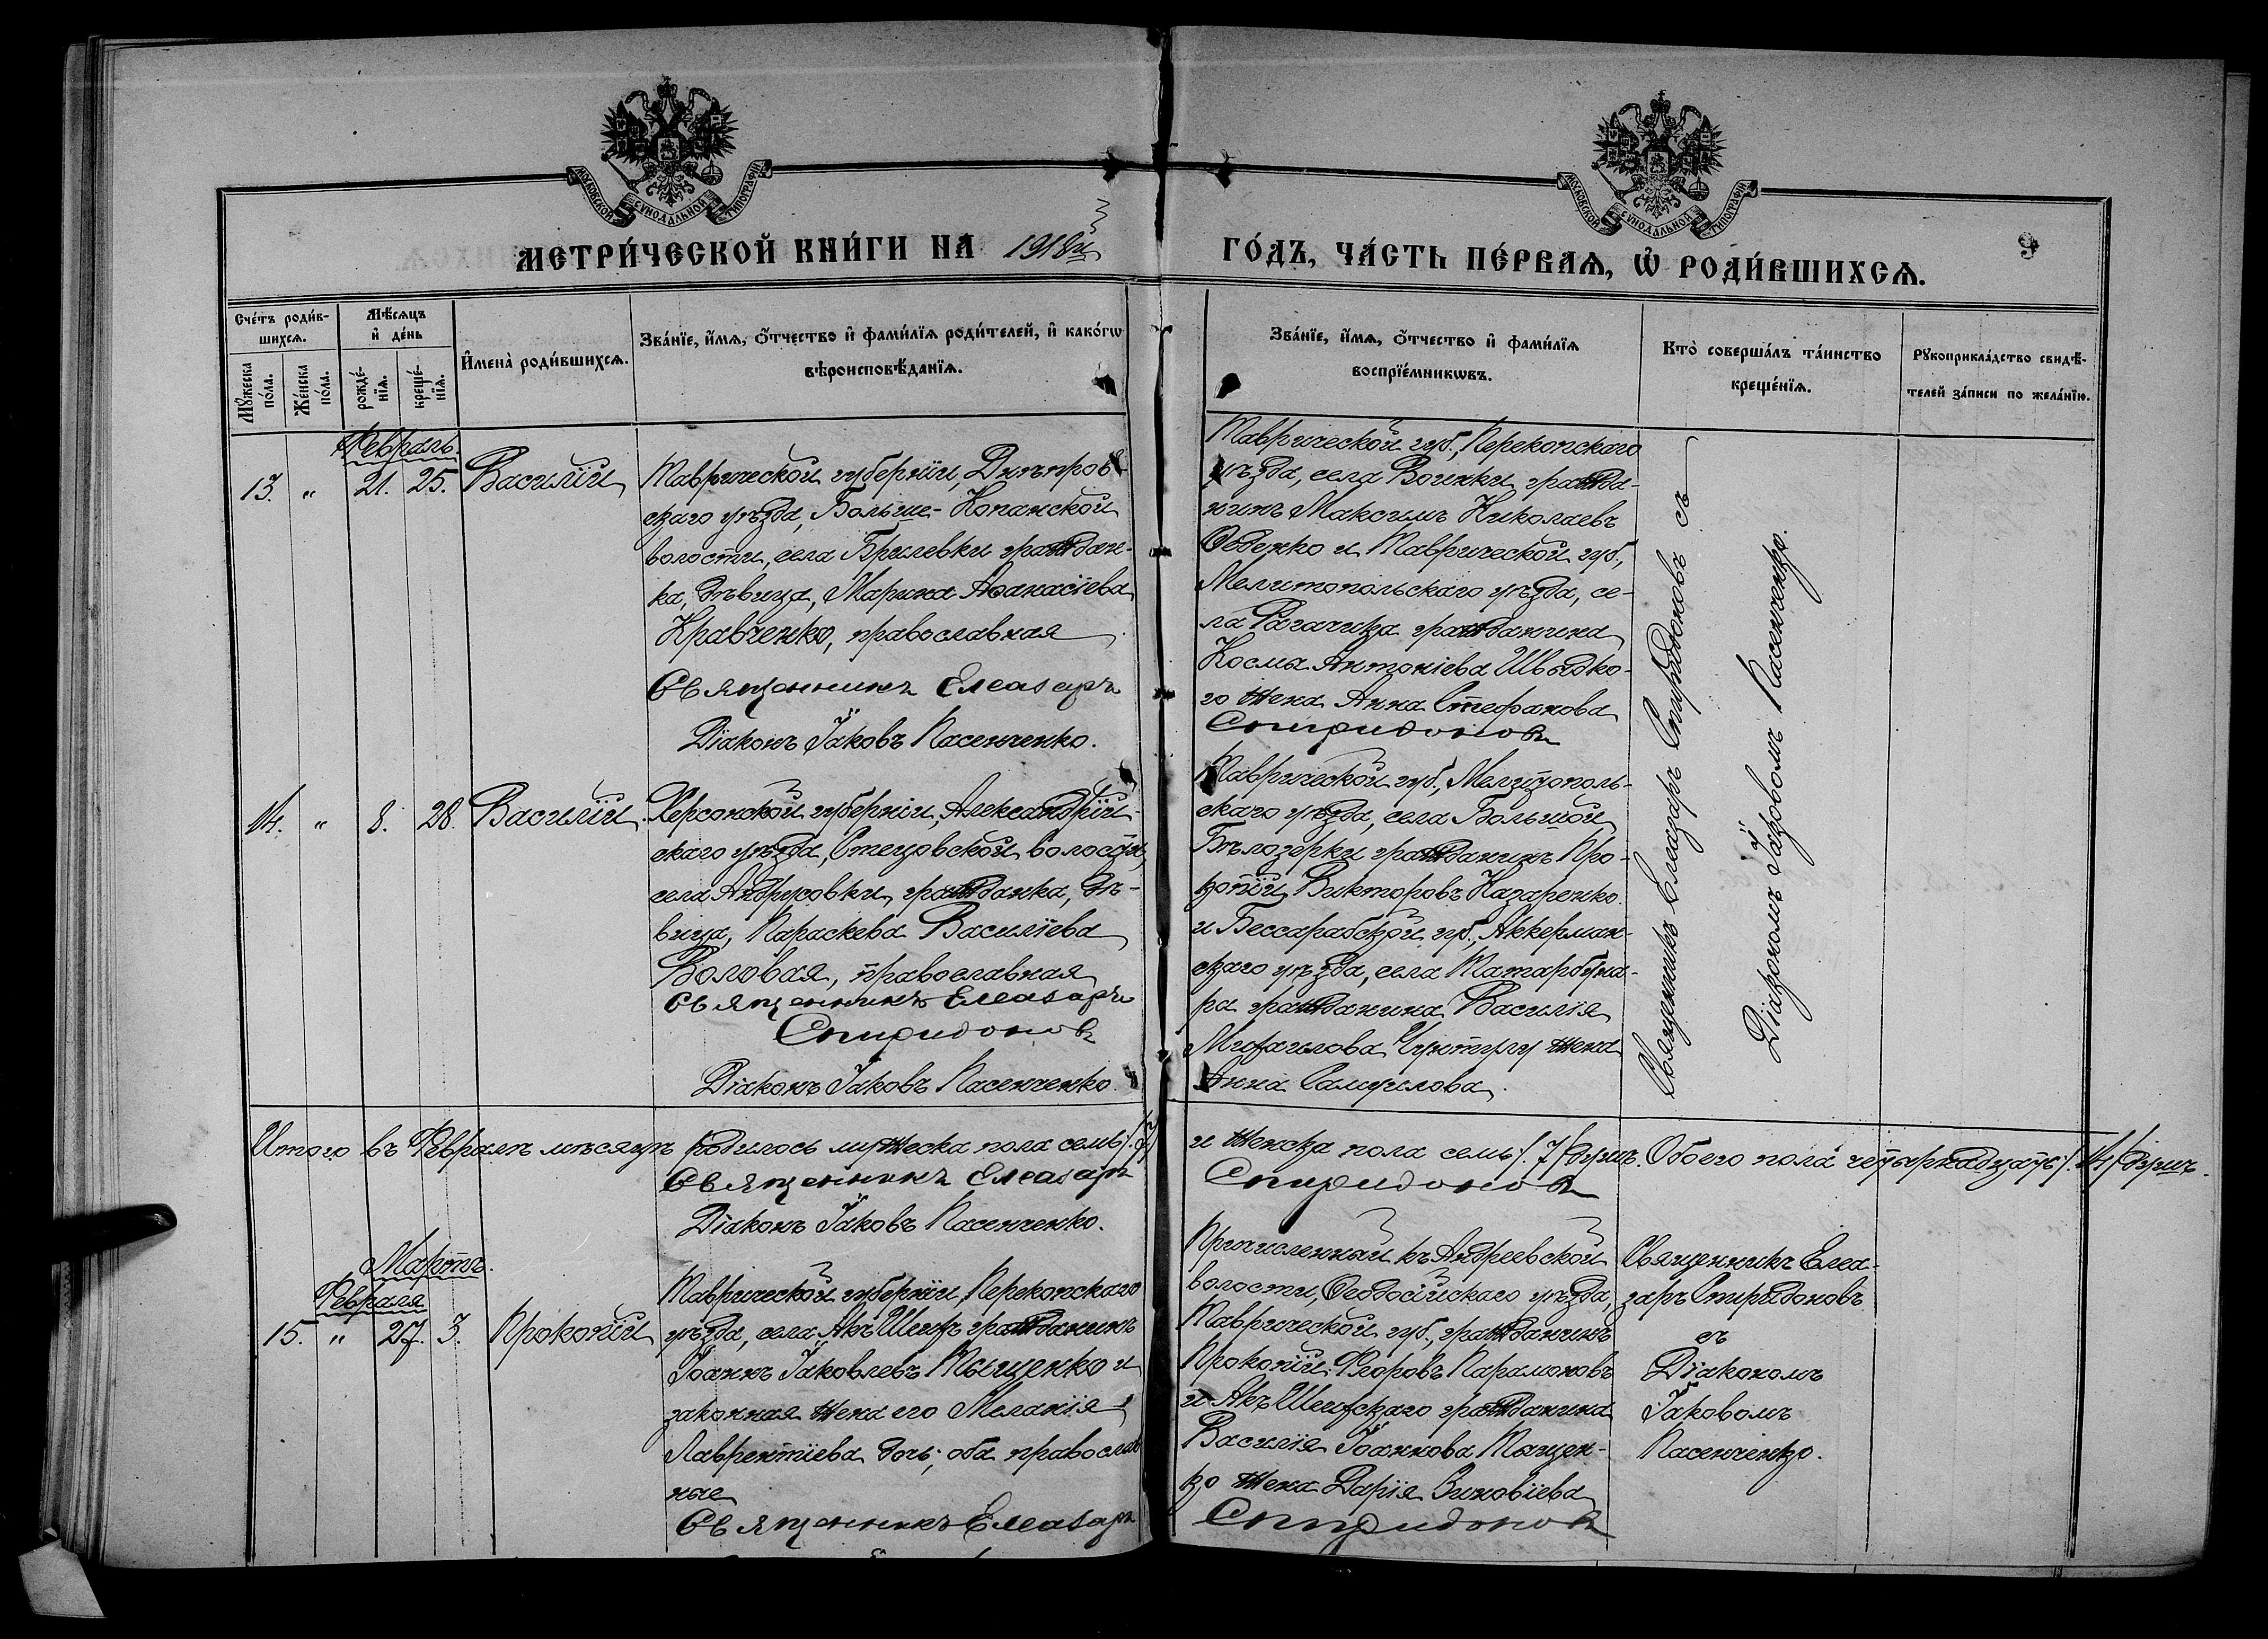 МОСКОВСКОЙ СѴНОДАЛЬНОЙ ТИПОГРАФІИ
МОСКОВСКОЙ СѴНОДАЛЬНОЙ ТИПОГРАФІИ
МЕТРИ́ЧЕСКОЙ КНИ́ГИ НА 1918й ГО́ДЪ, ЧА́СТЬ ПЕ́РВАѦ, Ѡ҆ РОДИ́ВШИХСѦ.
9
Сче́тъ роди́в-
шихсѧ.
Мꙋ́жеска
по́ла.
Же́нска
по́ла.
Мѣ́сѧцъ
и҆ де́нь
рожде́-
нїѧ.
креще́-
нїѧ.
И҆мена̀ роди́вшихсѧ.
Зва́нїе, и҆́мѧ, ѻ҆́тчество и҆ фами́лїѧ роди́телей, и҆ како́гѡ
вѣроисповѣ́данїѧ.
Зва́нїе, и҆́мѧ, ѻ҆́тчество и҆ фами́лїѧ
воспрїе́мникѡвъ.
Кто̀ соверша́лъ та́инство
креще́нїѧ.
Рꙋкоприкла́дство свидѣ́-
телей за́писи по жела́нїю.
Февраль.
13. " 21. 25. Василій
Таврической губерніи, Днѣпров-
скаго уѣзда, Больше-Копанской
волости, села Брилевки граждан-
ка, дѣвица, Марина Аѳанасіева
Кравченко, православная
Священникъ Елеазаръ
Діаконъ Іаковъ Пасенченко.
Таврической губ., Перекопскаго
уѣзда, села Воинки гражда-
нинъ Максимъ Николаевъ
Овденко и Таврической губ.,
Мелитопольскаго уѣзда, се-
ла Рогачика гражданина
Косма Антоніева Швыдко-
го жена Анна Стефанова
Спиридоновъ
Священникъ Елеазаръ Спиридоновъ съ
Діакономъ Іаковомъ Пасенченко.
14. " 8. 28. Василій
Херсонской губерніи, Александрій-
скаго уѣзда, Стецовской волости,
села Андрусовки, гражданка, дѣ-
вица, Параскева Василіева
Воловая, православная
Священникъ Елеазаръ
Спиридоновъ
Діаконъ Іаковъ Пасенченко.
Таврической губ., Мелитополь-
скаго уѣзда, села Большой
Бѣлозерки гражданинъ Про-
копій Викторовъ Назаренко
и Бессарабской губ., Аккерман-
скаго уѣзда, села Татарбуна-
ра гражданина Василія
Михаилова жена
Анна Самуилова.
Итого въ Февралѣ мѣсяцѣ родилось мужеска пола семь /.7/ и женска пола семь /.7/ душъ. Обоего пола четырнадцать /.14/ душъ.
Священникъ Елеазаръ Спиридоновъ
Діаконъ Іаковъ Пасенченко.
Мартъ.
Февраля
15. " 27. 3. Прокопій
Таврической губерніи, Перекопскаго
уѣзда, села Акъ Шеихъ гражданинъ
Іоаннъ Іаковлевъ Тыщенко и
законная жена его Меланія
Лаврентіева дочь; оба православ
ные
Священникъ Елеазаръ
Причисленный къ Андреевской
волости, Ѳеодосійскаго уѣзда,
Таврической губ., гражданинъ
Прокопій Флоровъ Парамоновъ
и Акъ Шеихскаго гражданина
Василія Іоаннова Тыщен-
ко жена Дарія Зиновіева
Спиридоновъ
Священникъ Елеа-
заръ Спиридоновъ
съ
Діакономъ
Іаковомъ
Пасенченко.